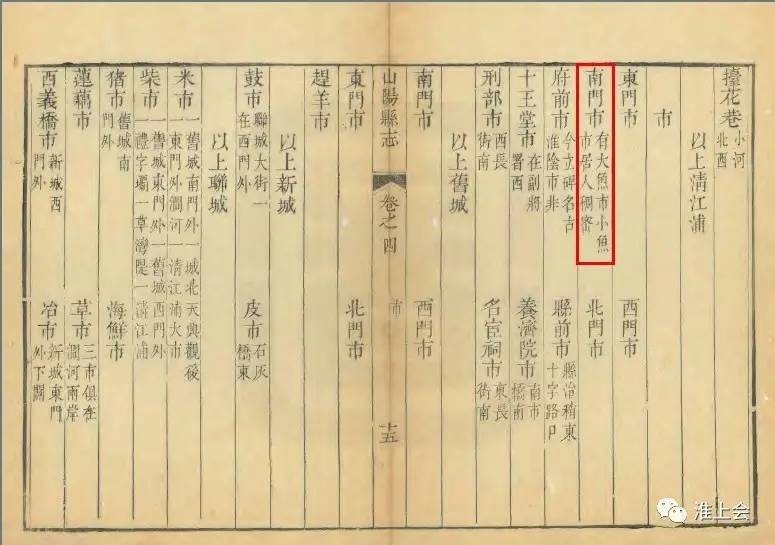 擡花巷 小河北西
以上淸江浦
市
東門市 西門市
南門市 有大魚市小魚市居人稠密 北門市
府前市 今立碑名古淮陰市非 縣前市 縣治稍東十字路口
十王堂市 在副將署西 養濟院市 南市橋南
刑部市 西長街南 名宦祠市 東長街南
以上舊城
南門市 西門市
山陽縣志 卷之四 市 十五
東門市 北門市
趕羊市
以上新城
鼓市 聯城大街一在西門外 皮市 石灰橋東
以上聯城
米市 一舊城南門外一城北天興觀後一東門外澗河一淸江浦大市
柴市 一舊城東門外一舊城西門外一禮字壩一草灣隄一淸江浦
猪市 舊城南門外 海鮮市
蓮藕市 草市 三市俱在澗河兩岸
西義橋市 新城西門外 冶市 新城東門外下關
淮上会